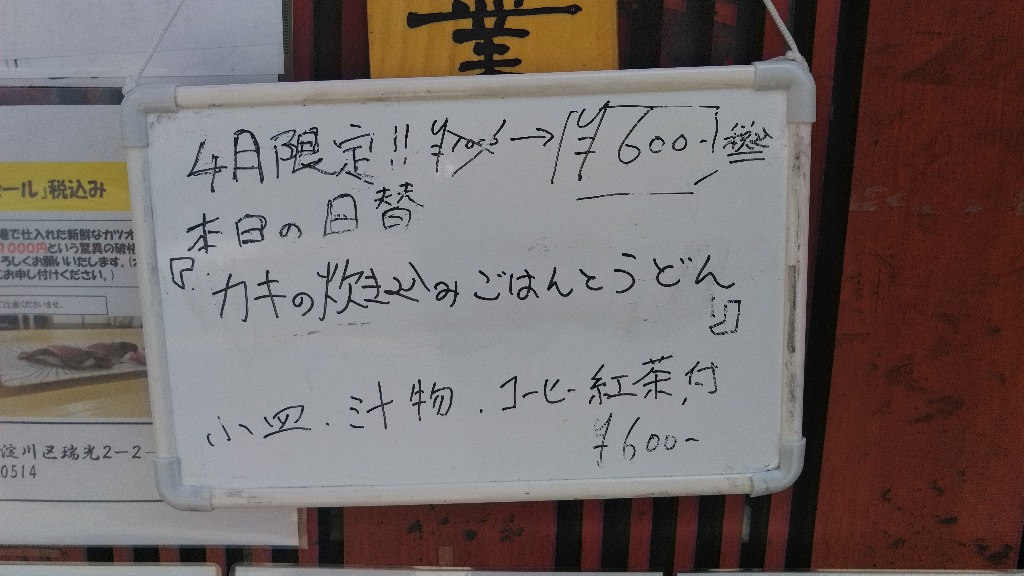 業
4月限定!! ¥700- → ¥600- 税込
本日の日替
『カキの炊き込みごはんとうどん』
小皿.汁物.コーヒー紅茶付
¥600-
ール」税込み
港で仕入れた新鮮なカツオ
1000円という驚異の破格
ろしくお願いいたします。
にお申し付けください。)
ご注意くださいませ。
淀川区瑞光2-2-
0514